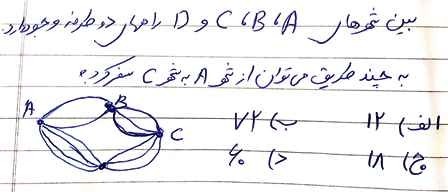 بین شهرهای A، B، C و D راههای دو طرفه وجود دارد.
به چند طریق می‌توان از شهر A به شهر C سفر کرد؟
الف) ۱۲ ب) ۷۲
ج) ۱۸ د) ۶۰
A
B
C